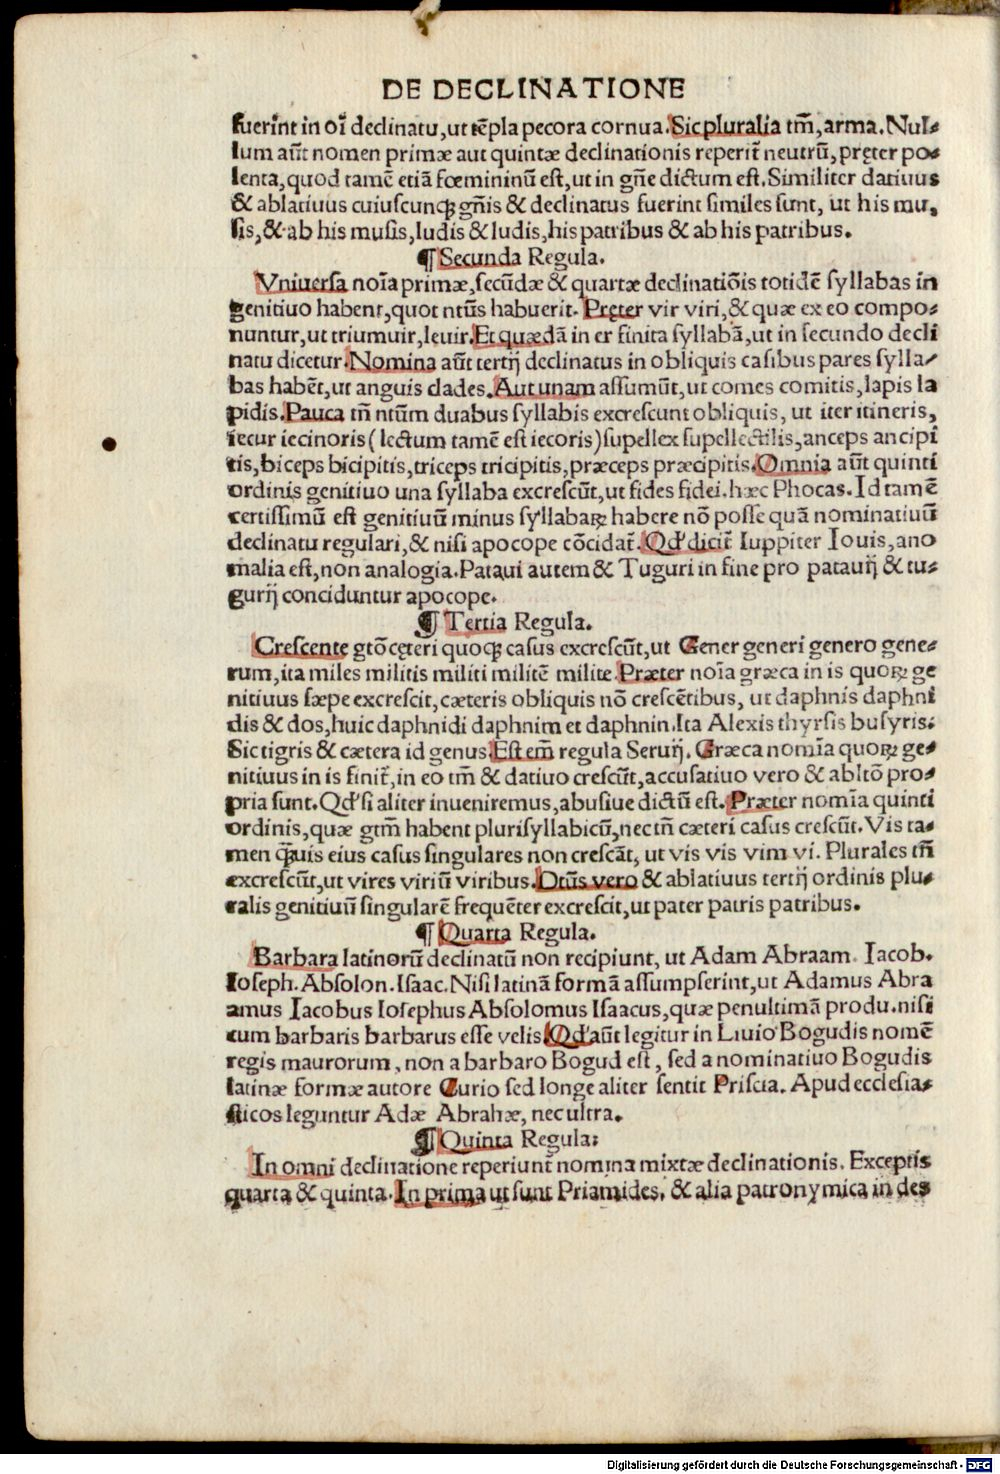 DE DECLINATIONE
fuerīnt in oī declinatu,ut tēpla pecora cornua.Sic pluralia tm̄,arma.Nul⸗
lum aūt nomen primæ aut quintæ declinationis reperit̄ neutrū,pręter po⸗
lenta,quod tamē etiā fœmininū est,ut in gn̄e dictum est.Similiter datiuus
& ablatiuus cuiuscunqꝫ gn̄is & declinatus fuerint similes sunt, ut his mu,
sis,& ab his musis,ludis & ludis,his patribus & ab his patribus.
¶ Secunda Regula.
Vniuersa noīa primæ,secūdæ & quartæ declinatiōis totidē syllabas in
genitiuo habent,quot ntūs habuerit. Pręter vir viri,& quæ ex eo compo⸗
nuntur,ut triumuir,leuir.Et quædā in er finita syllabā,ut in secundo decli
natu dicetur.Nomina aūt tertij declinatus in obliquis casibus pares sylla⸗
bas habēt,ut anguis clades.Aut unam assumūt,ut comes comitis,lapis la
pidis.Pauca tn̄ ntūm duabus syllabis excrescunt obliquis, ut iter itineris,
iecur iecinoris(lectum tamē est iecoris)supellex supellectilis,anceps ancipi
tis,biceps bicipitis,triceps tricipitis,præceps præcipitis.Omnia aūt quinti
ordinis genitiuo una syllaba excrescūt,ut fides fidei.hæc Phocas.Id tamē
certissimū est genitiuū minus syllabaꝝ habere nō posse quā nominatiuū
declinatu regulari,& nisi apocope cōcidat̄. Qd' dicit̄ Iuppiter Iouis,ano
malia est,non analogia.Pataui autem & Tuguri in fine pro patauij & tu⸗
gurij conciduntur apocope.
¶ Tertia Regula.
Crescente gtō cęteri quoqꝫ casus excrescūt,ut Gener generi genero gene⸗
rum,ita miles militis militi militē milite.Præter noīa græca in is quoꝝ ge
nitiuus sæpe excrescit,cæteris obliquis nō crescētibus, ut daphnis daphni
dis & dos,huic daphnidi daphnim et daphnin.Ita Alexis thyrsis busyris.
Sic tigris & cætera id genus.Est em̄ regula Seruij. Græca nomīa quoꝝ ge⸗
nitiuus in is finit̄,in eo tm̄ & datiuo crescūt,accusatiuo vero & abltō pro⸗
pria sunt.Qd' si aliter inueniremus,abusiue dictū est. Præter nomīa quinti
ordinis,quæ gtm̄ habent plurisyllabicū,nec tn̄ cæteri casus crescūt.Vis ta⸗
men quis eius casus singulares non crescāt, ut vis vis vim vi. Plurales tn̄
excrescūt,ut vires viriū viribus.Dtūs vero & ablatiuus tertij ordinis plu⸗
ralis genitiuū singularē frequēter excrescit,ut pater patris patribus.
¶ Quarta Regula.
Barbara latinorū declinatū non recipiunt, ut Adam Abraam. Iacob.
Ioseph.Absolon.Isaac.Nisi latinā formā assumpserint,ut Adamus Abra
amus Iacobus Iosephus Absolomus Isaacus,quæ penultimā produ.nisi
cum barbaris barbarus esse velis.Qd' aūt legitur in Liuio Bogudis nomē
regis maurorum, non a barbaro Bogud est, sed a nominatiuo Bogudis
latinæ formæ autore Curio sed longe aliter sentit Priscia. Apud ecclesia⸗
sticos leguntur Adæ Abrahæ, nec ultra.
¶ Quinta Regula:
In omni declinatione reperiunt̄ nomina mixtæ declinationis. Exceptis
quarta & quinta.In prima ut sunt Priamides. & alia patronymica in des
Digitalisierung gefördert durch die Deutsche Forschungsgemeinschaft - DFG